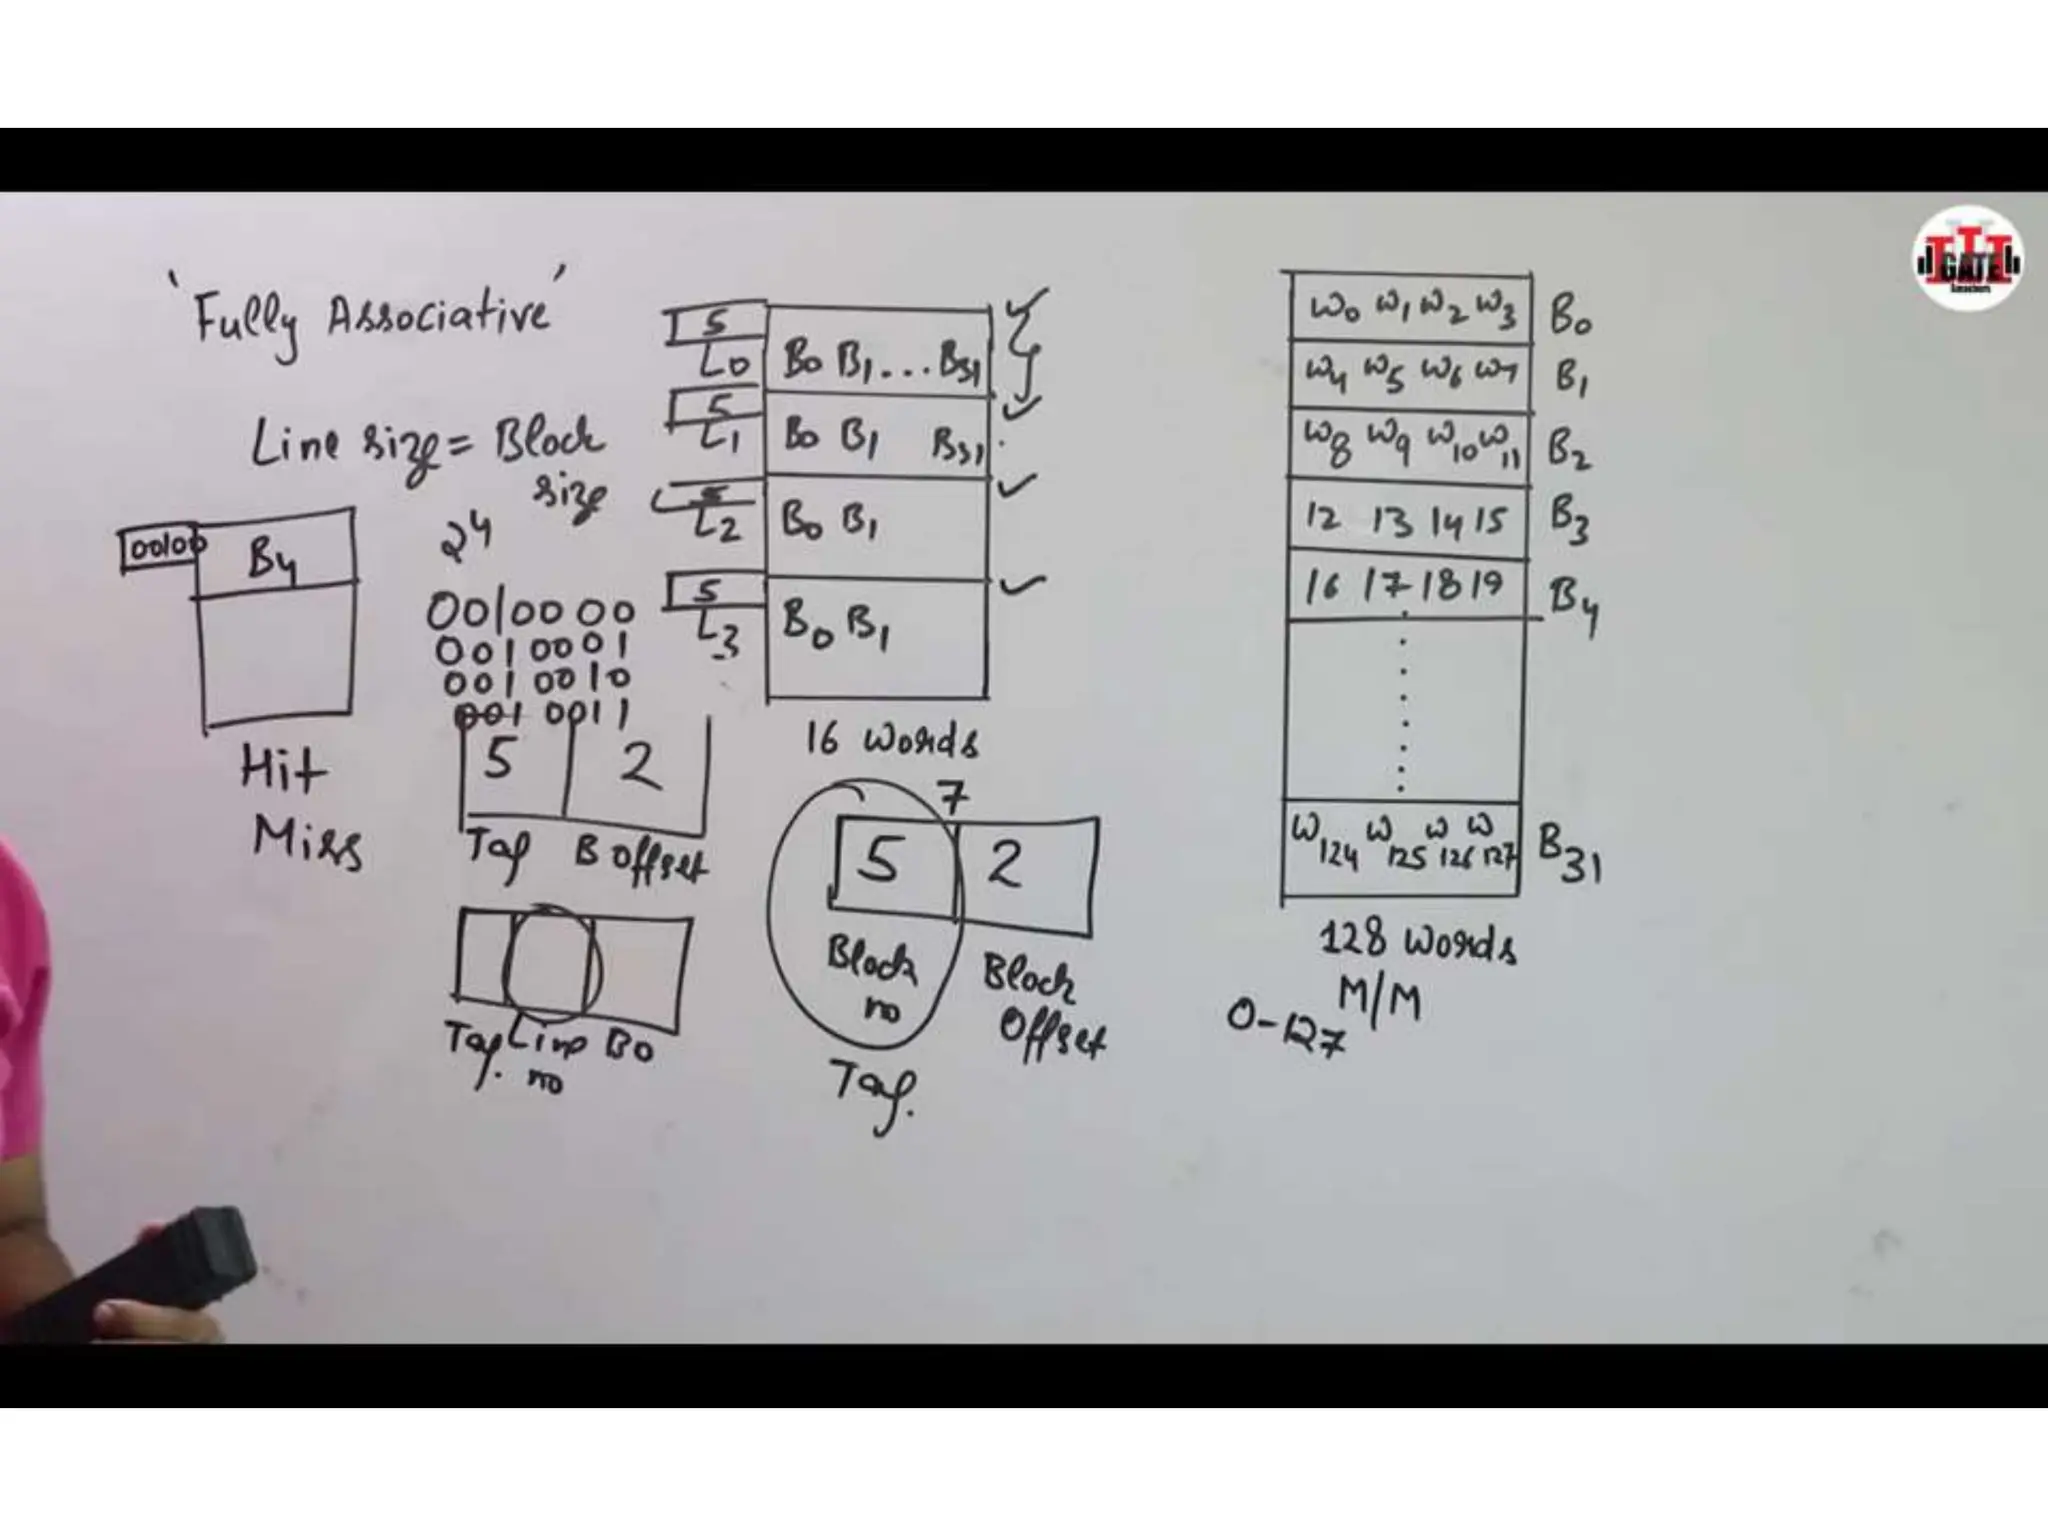 'Fully Associative'
Line size = Block
size
2 4
00100
B4
0010000
0010001
0010010
0010011
5 2
Tag B Offset
Hit
Miss
Tag. Line B O
no
5
L0 B0 B1 ... B31
5
L1 B0 B1 B31
5
L2 B0 B1
5
L3 B0 B1
16 words
7
5 2
Block
no
Block
Offset
Tag.
W0 W1 W2 W3 B0
W4 W5 W6 W7 B1
W8 W9 W10 W11 B2
12 13 14 15 B3
16 17 18 19 B4
W124 W125 W126 W127 B31
128 words
M/M
0-127
GATE